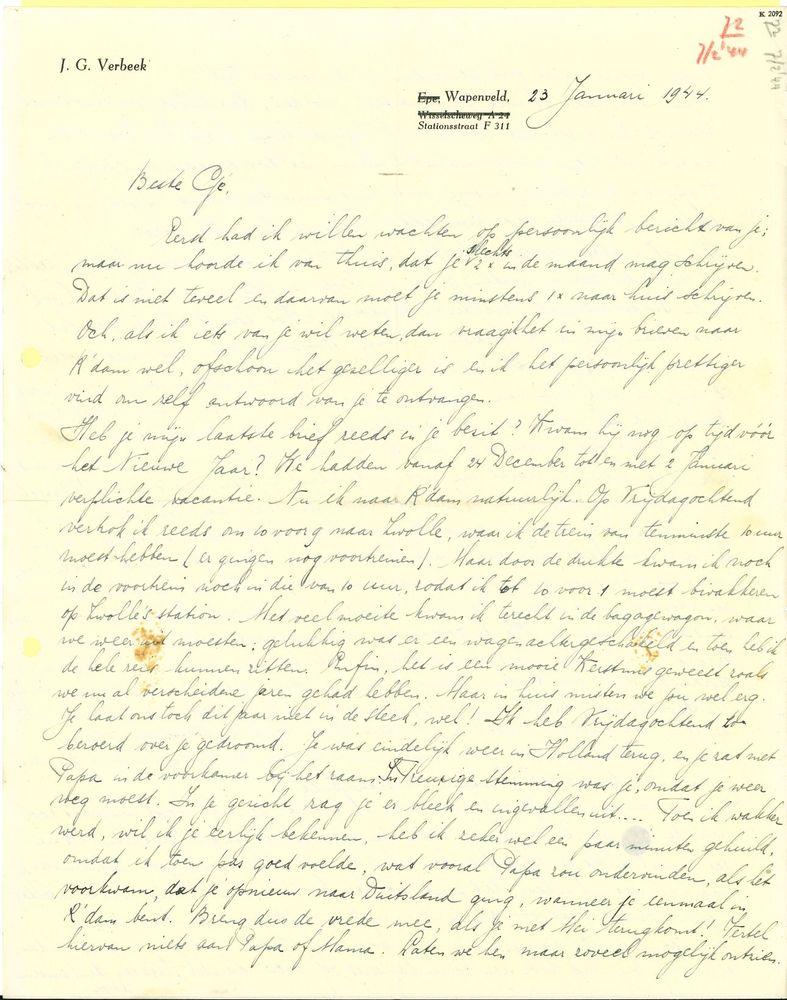 K 2092
72
7/2 '44
72 7/2 '44
J. G. Verbeek
Epe, Wapenveld, 23 Januari 1944.
Wisselscheweg A 24
Stationsstraat F 311
Beste Gé,
Eerst had ik willen wachten op persoonlijk bericht van je;
maar nu hoorde ik van thuis, dat je slechts 2 x in de maand mag schrijven.
Dat is niet teveel en daarvan moet je minstens 1x naar huis schrijven.
Och, als ik iets van je wil weten, dan vraag ik het in mijn brieven naar
R'dam wel, ofschoon het gezelliger is en ik het persoonlijk prettiger
vind om zelf antwoord van je te ontvangen.
Heb je mijn laatste brief reeds in je bezit? Kwam hij nog op tijd vóór
het Nieuwe Jaar? We hadden vanaf 24 December tot en met 2 Januari
verplichte vacantie. Nu ik naar R'dam natuurlijk. Op Vrijdagochtend
vertrok ik reeds om 10 voor 9 naar Zwolle, waar ik de trein van tenminste 10 uur
moest hebben (er gingen nog voortreinen). Maar door de drukte kwam ik noch
in de voortrein noch in die van 10 uur, zodat ik tot 10 voor 1 moest bivakkeren
op Zwolle's station. Met veel moeite kwam ik terecht in de bagagewagon, waar
we weer uit moesten; gelukkig was er een wagen achtergeschakeld en toen heb ik
de hele reis kunnen zitten. Enfin, het is een mooie Kerstmis geweest zoals
we nu al verscheidene jaren gehad hebben. Maar in huis misten we jou wel erg.
Je laat ons toch dit jaar niet in de steek, wel! Ik heb Vrijdagochtend zo
beroerd over je gedroomd. Je was eindelijk weer in Holland terug, en je zat met
Papa in de voorkamer bij het raam. In treurige stemming was je, omdat je weer
weg moest. In je gezicht zag je er bleek en ingevallen uit.... Toen ik wakker
werd, wil ik je eerlijk bekennen, heb ik zeker wel een paar minuten gehuild,
omdat ik toen pas goed voelde, wat vooral Papa zou ondervinden, als het
voorkwam, dat je opnieuw naar Duitsland ging, wanneer je eenmaal in
R'dam bent. Breng dus de vrede mee, als je met Mei terugkomt! Vertel
hiervan niets aan Papa of Mama. Laten we hen maar zoveel mogelijk ontzien.